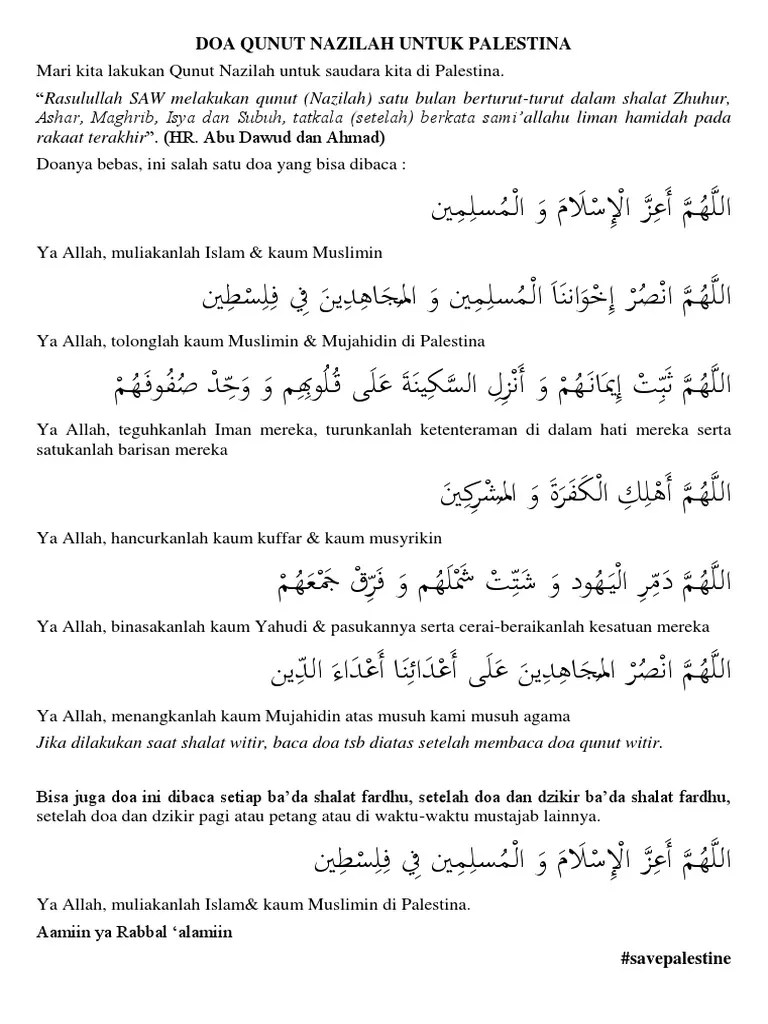 DOA QUNUT NAZILAH UNTUK PALESTINA
Mari kita lakukan Qunut Nazilah untuk saudara kita di Palestina.
“Rasulullah SAW melakukan qunut (Nazilah) satu bulan berturut-turut dalam shalat Zhuhur,
Ashar, Maghrib, Isya dan Subuh, tatkala (setelah) berkata sami’allahu liman hamidah pada
rakaat terakhir”. (HR. Abu Dawud dan Ahmad)
Doanya bebas, ini salah satu doa yang bisa dibaca :
اللَّهُمَّ أَعِزَّ الْإِسْلَامَ وَ الْمُسلِمِين
Ya Allah, muliakanlah Islam & kaum Muslimin
اللَّهُمَّ انْصُرْ إِخْوَاننَاَ الْمُسلِمِين وَ المُجَاهِدِينَ فِي فِلِسْطِين
Ya Allah, tolonglah kaum Muslimin & Mujahidin di Palestina
اللَّهُمَّ ثَبِّتْ إِيمَانَهُمْ وَ أَنْزِلِ السَّكِينَةَ عَلَى قُلُوبِهِم وَ وَحِّدْ صُفُوفَهُمْ
Ya Allah, teguhkanlah Iman mereka, turunkanlah ketenteraman di dalam hati mereka serta
satukanlah barisan mereka
اللَّهُمَّ أَهْلِكِ الْكَفَرَةَ وَ المُشْرِكِينَ
Ya Allah, hancurkanlah kaum kuffar & kaum musyrikin
اللَّهُمَّ دَمِّرِ الْيَهُود وَ شَتِّتْ شَمْلَهُم وَ فَرِّقْ جَمْعَهُمْ
Ya Allah, binasakanlah kaum Yahudi & pasukannya serta cerai-beraikanlah kesatuan mereka
اللَّهُمَّ انْصُرْ المُجَاهِدِينَ عَلَى أَعْدَائِنَا أَعْدَاءَ الدِّين
Ya Allah, menangkanlah kaum Mujahidin atas musuh kami musuh agama
Jika dilakukan saat shalat witir, baca doa tsb diatas setelah membaca doa qunut witir.
Bisa juga doa ini dibaca setiap ba’da shalat fardhu, setelah doa dan dzikir ba’da shalat fardhu,
setelah doa dan dzikir pagi atau petang atau di waktu-waktu mustajab lainnya.
اللَّهُمَّ أَعِزَّ الْإِسْلَامَ وَ الْمُسلِمِين فِي فِلِسْطِين
Ya Allah, muliakanlah Islam& kaum Muslimin di Palestina.
Aamiin ya Rabbal ‘alamiin
#savepalestine